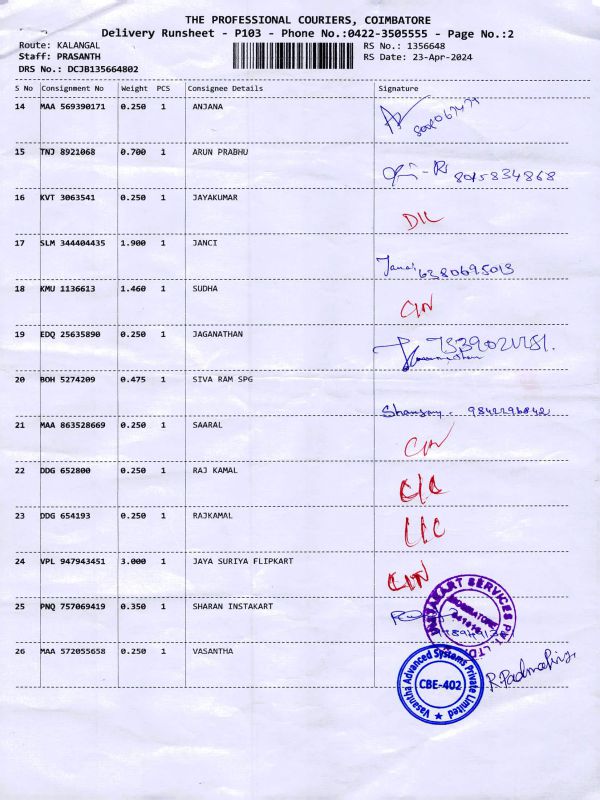 THE PROFESSIONAL COURIERS, COIMBATORE
Delivery Runsheet - P103 - Phone No.:0422-3505555 - Page No.:2
Route: KALANGAL RS No.: 1356648
Staff: PRASANTH RS Date: 23-Apr-2024
DRS No.: DCJB135664802
S No Consignment No Weight PCS Consignee Details Signature
14 MAA 569390171 0.250 1 ANJANA
15 TNJ 8921068 0.700 1 ARUN PRABHU 8015834868
16 KVT 3063541 0.250 1 JAYAKUMAR
17 SLM 344404435 1.900 1 JANCI 6380695013
18 KMU 1136613 1.460 1 SUDHA
19 EDQ 25635890 0.250 1 JAGANATHAN
20 BOH 5274209 0.475 1 SIVA RAM SPG
21 MAA 863528669 0.250 1 SAARAL
22 DDG 652800 0.250 1 RAJ KAMAL
23 DDG 654193 0.250 1 RAJKAMAL
24 VPL 947943451 3.000 1 JAYA SURIYA FLIPKART
25 PNQ 757069419 0.350 1 SHARAN INSTAKART
INSTAKART SERVICES PVT LTD
COIMBATORE
26 MAA 572055658 0.250 1 VASANTHA
Vasantha Advanced Systems Private Limited
CBE-402